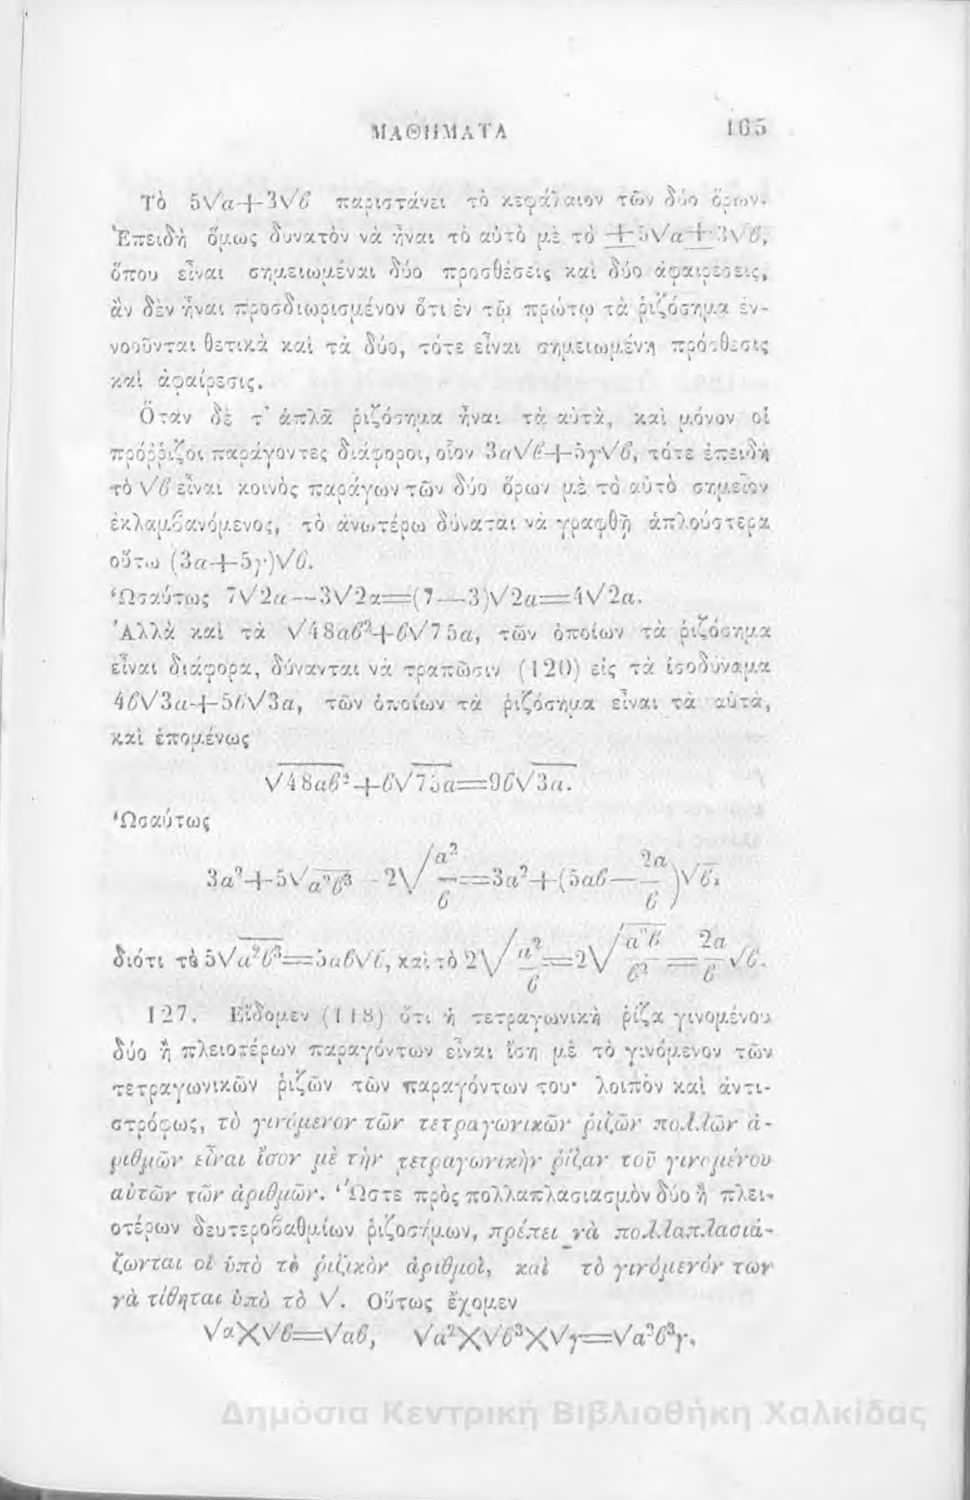 ΜΑΘΗΜΑΤΑ 165
Τὸ 5√α+3√β παριστάνει τὸ κεφάλαιον τῶν δύο ὅρων.
Ἐπειδὴ ὅμως δυνατὸν νὰ ἦναι τὸ αὐτὸ μὲ τὸ ±5√α±3√β,
ὅπου εἶναι σημειωμέναι δύο προσθέσεις καὶ δύο ἀφαιρέσεις,
ἂν δὲν ἦναι προσδιωρισμένον ὅτι ἐν τῷ πρώτῳ τὰ ῥιζόσημα ἐν-
νοοῦνται θετικὰ καὶ τὰ δύο, τότε εἶναι σημειωμένη πρόσθεσις
καὶ ἀφαίρεσις.
Ὅταν δὲ τ' ἁπλᾶ ῥιζόσημα ἦναι τὰ αὐτὰ, καὶ μόνον οἱ
πρόῤῥιζοι παράγοντες διάφοροι, οἷον 3α√β+5γ√β, τότε ἐπειδὴ
τὸ √β εἶναι κοινὸς παράγων τῶν δύο ὅρων μὲ τὸ αὐτὸ σημεῖον
ἐκλαμβανόμενος, τὸ ἀνωτέρω δύναται νὰ γραφθῇ ἁπλούστερα
οὕτω (3α+5γ)√β.
Ὡσαύτως 7√2α—3√2α=(7—3)√2α=4√2α.
Ἀλλὰ καὶ τὰ √48αβ²+β√75α, τῶν ὁποίων τὰ ῥιζόσημα
εἶναι διάφορα, δύνανται νὰ τραπῶσιν (120) εἰς τὰ ἰσοδύναμα
4β√3α+5β√3α, τῶν ὁποίων τὰ ῥιζόσημα εἶναι τὰ αὐτὰ,
καὶ ἑπομένως
√48αβ²+β√75α=9β√3α.
Ὡσαύτως
3α²+5√α²β³—2√α²/β=3α²+(5αβ—2α/β)√β,
διότι τὸ 5√α²β³=5αβ√β, καὶ τὸ 2√α²/β=2√α²β/β²=2α/β√β.
127. Εἴδομεν (118) ὅτι ἡ τετραγωνικὴ ῥίζα γινομένου
δύο ἢ πλειοτέρων παραγόντων εἶναι ἴση μὲ τὸ γινόμενον τῶν
τετραγωνικῶν ῥιζῶν τῶν παραγόντων του· λοιπὸν καὶ ἀντι-
στρόφως, τὸ γινόμενον τῶν τετραγωνικῶν ῥιζῶν πολλῶν ἀ-
ριθμῶν εἶναι ἴσον μὲ τὴν τετραγωνικὴν ῥίζαν τοῦ γινομένου
αὐτῶν τῶν ἀριθμῶν. Ὥστε πρὸς πολλαπλασιασμὸν δύο ἢ πλει-
οτέρων δευτεροβαθμίων ῥιζοσήμων, πρέπει νὰ πολλαπλασιά-
ζωνται οἱ ὑπὸ τὸ ῥιζικὸν ἀριθμοὶ, καὶ τὸ γινόμενόν των
νὰ τίθηται ὑπὸ τὸ √. Οὕτως ἔχομεν
√α×√β=√αβ, √α²×√β³×√γ=√α²β³γ.
Δημόσια Κεντρική Βιβλιοθήκη Χαλκίδας